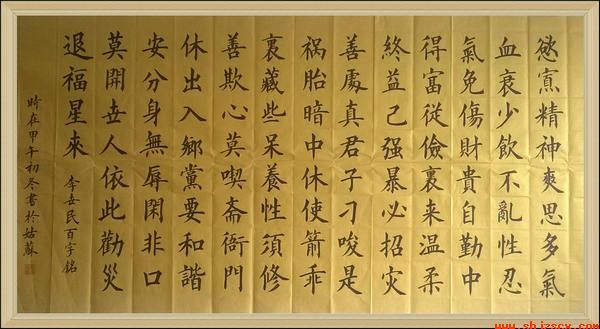 慾寡精神爽思多氣
血衰少飲不亂性忍
氣免傷財貴自勤中
得富從儉裏来温柔
終益己强暴必招灾
善處真君子刁唆是
祸胎暗中休使箭乖
裏藏些呆養性須修
善欺心莫喫斋衙門
休出入鄉黨要和諧
安分身無辱閑非口
莫開世人依此勸災
退福星來
李世民百字銘
時在甲午初冬書於姑蘇